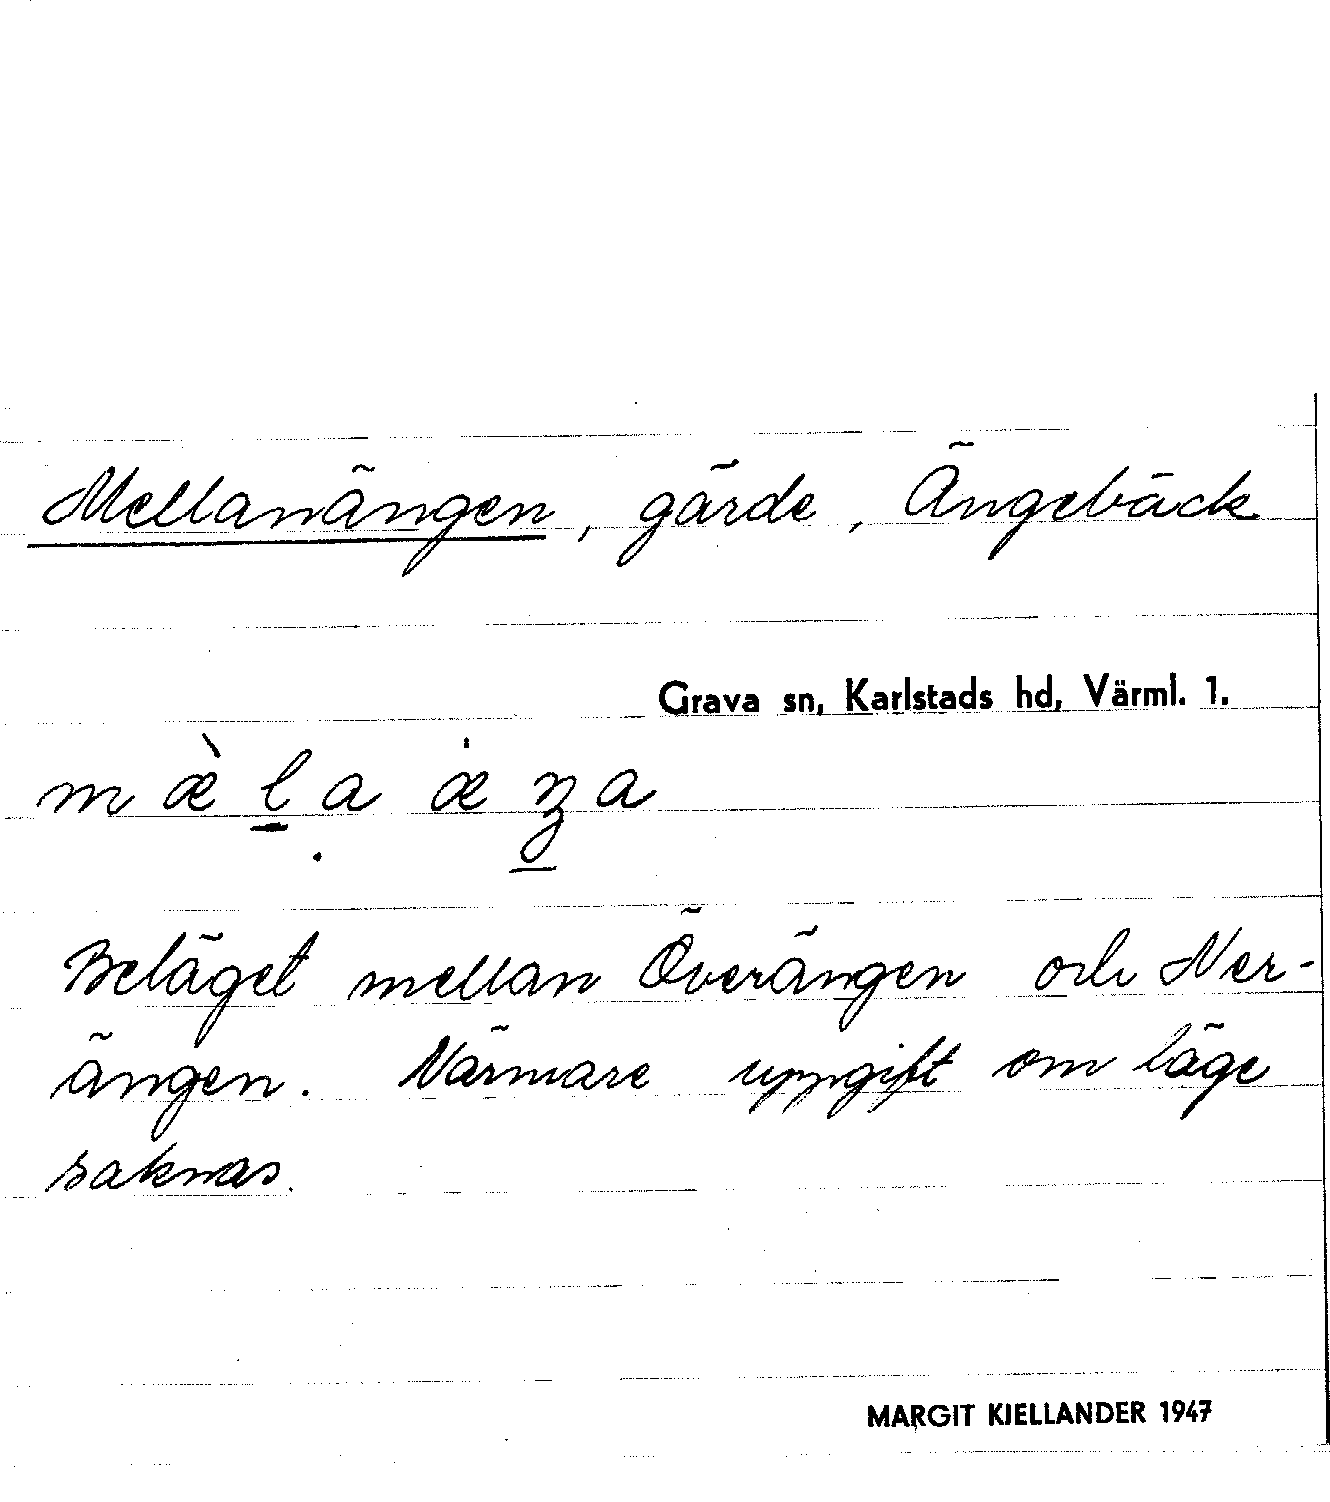 Mellanängen, gärde, Ängebäck
Grava sn, Karlstads hd, Värml. 1.
mæ̀l̠a æ̍ŋ̠a
Beläget mellan Överängen och Ner-
ängen. Närmare uppgift om läge
saknas.
MARGIT KJELLANDER 1947